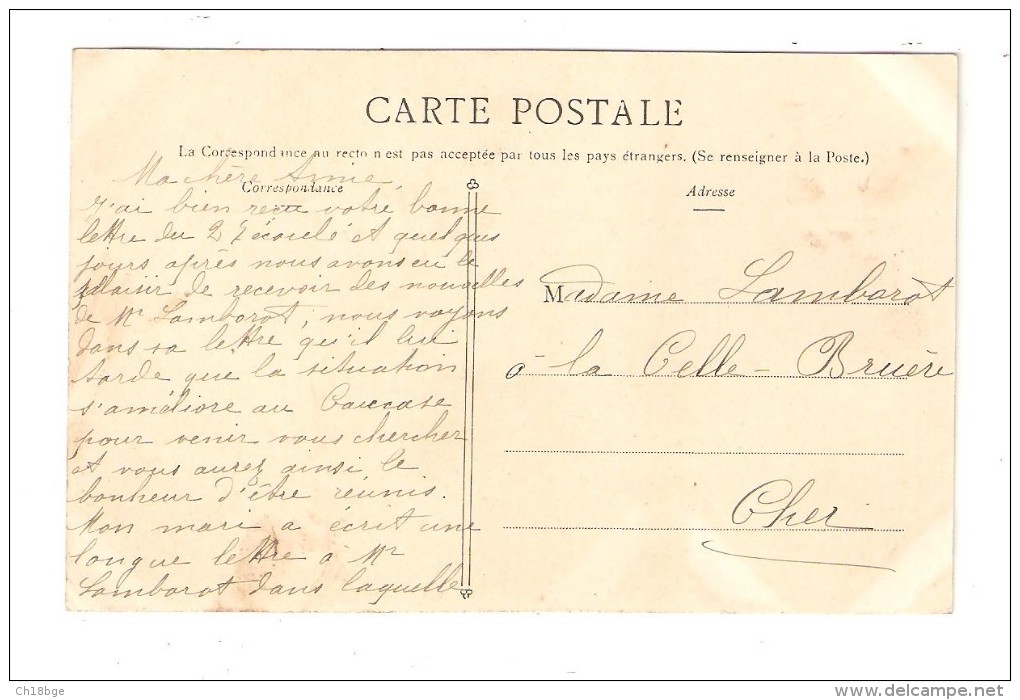 CARTE POSTALE
La Correspondance au recto n'est pas acceptée par tous les pays étrangers. (Se renseigner à la Poste.)
Correspondance
Ma chère Amie,
J'ai bien reçu votre bonne
lettre du 27 écoulé et quelques
jours après nous avons eu le
plaisir de recevoir des nouvelles
de Mr Lamborot, nous voyons
dans sa lettre qu'il lui
tarde que la situation
s'améliore au Caucase
pour venir vous chercher
et vous aurez ainsi le
bonheur d'être réunis.
Mon mari a écrit une
longue lettre à Mr
Lamborot dans laquelle
Adresse
Madame Lamborot
à la Celle-Bruère
Cher
Ch18bge
www.delcampe.net